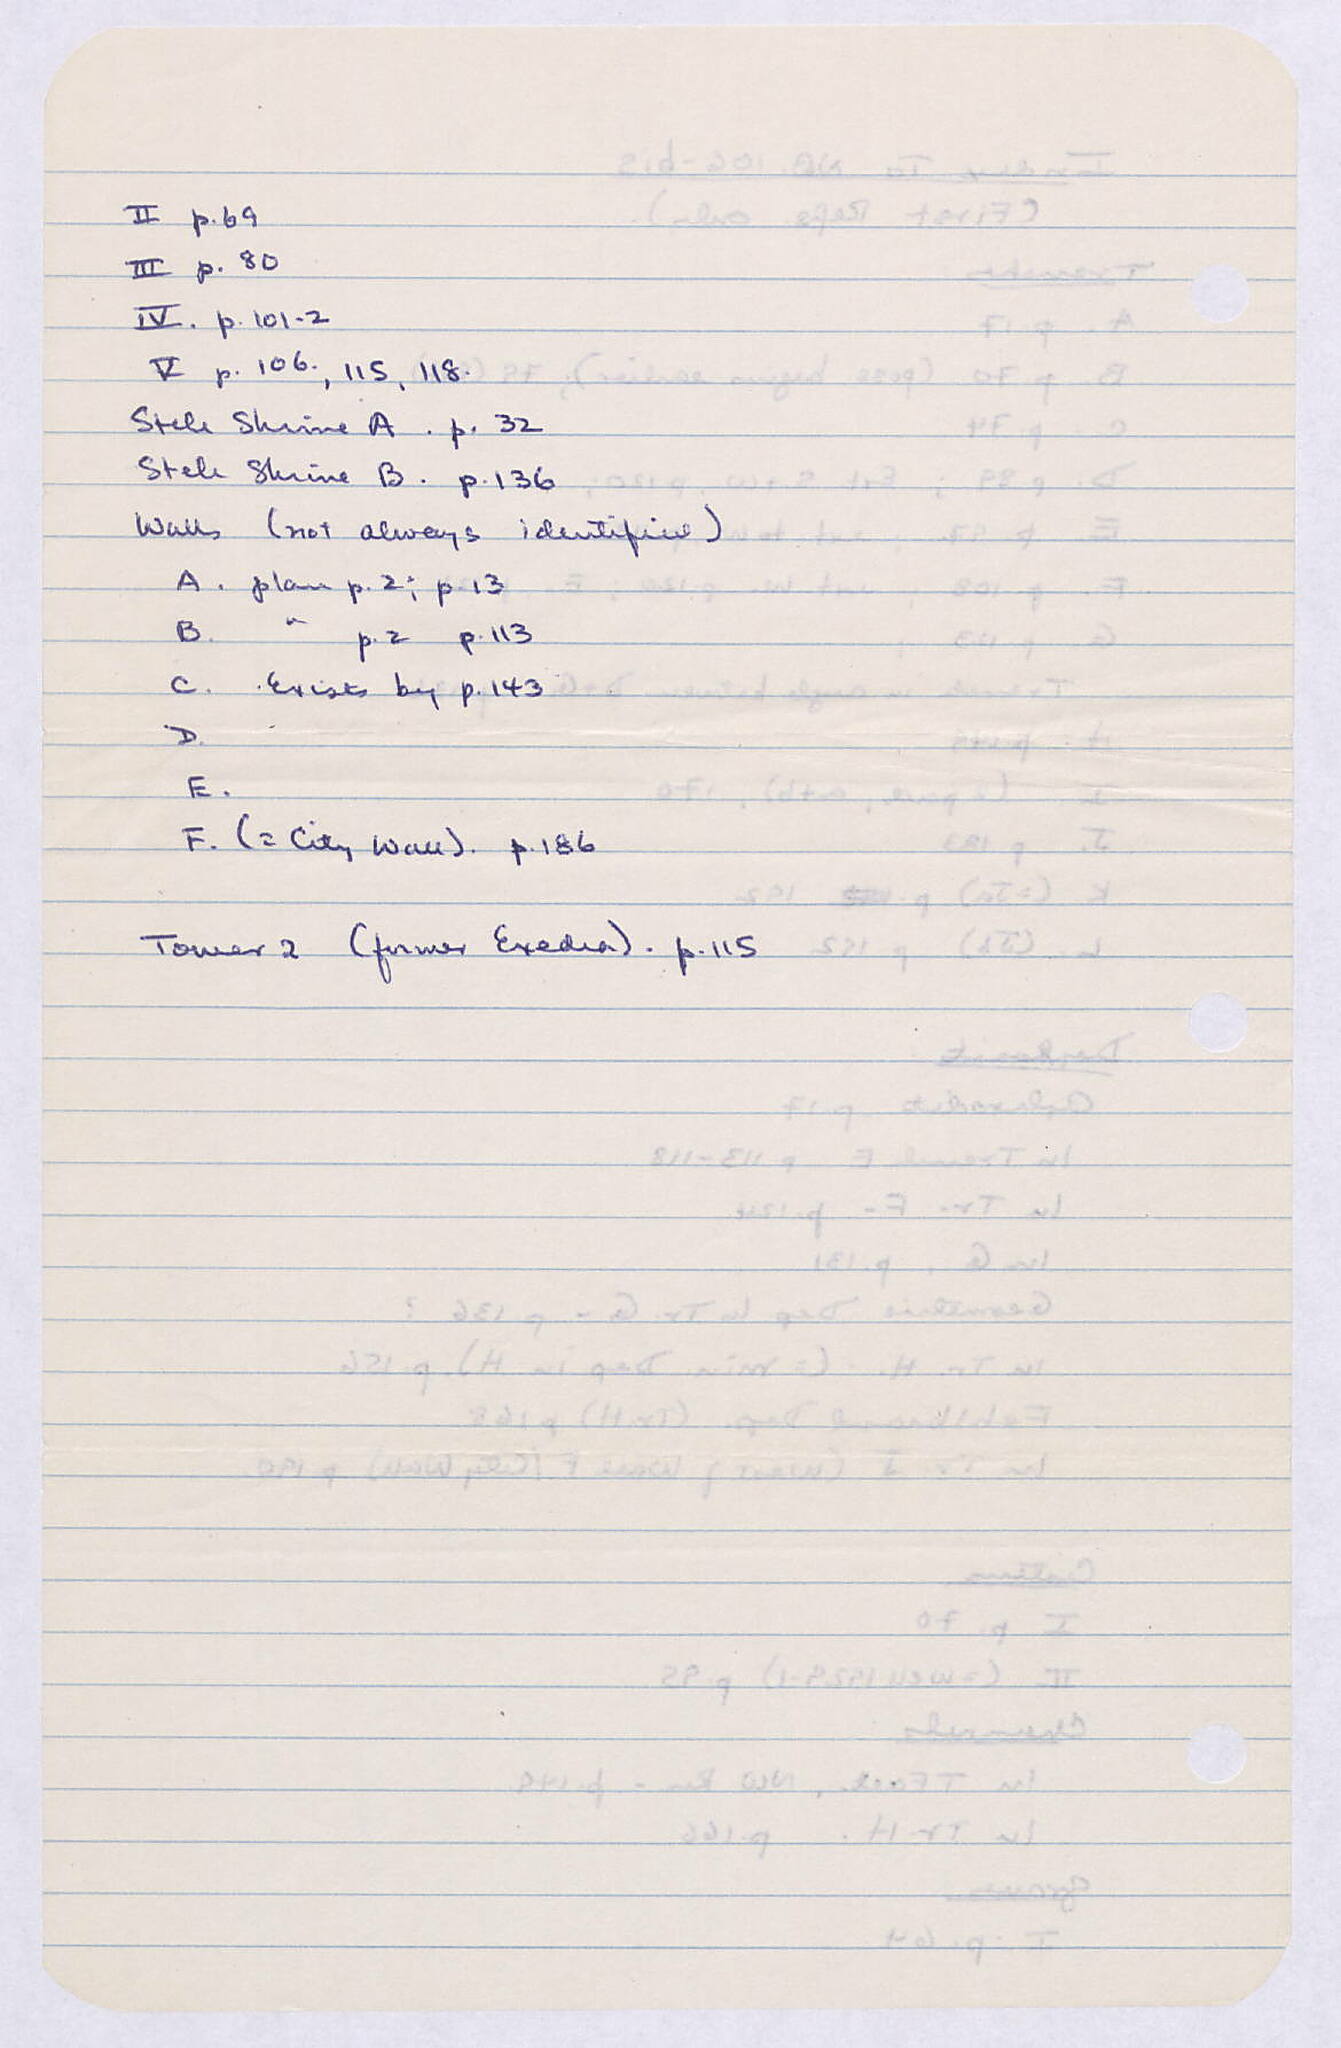 II p.69
III p. 80
IV. p. 101-2
V p. 106., 115, 118.
Stele Shrine A . p. 32
Stele Shrine B. p.136
Walls (not always identified)
A. plan p.2; p.13
B. " p.2 p.113
C. Exists by p.143
D.
E.
F. (= City Wall). p.186
Tower 2 (former Exedra). p.115